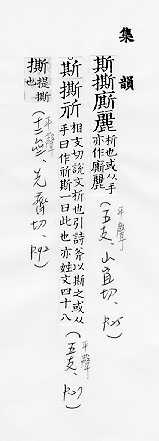 集韻
斯撕廝𠩺析也或从手亦作廝𠩺（平聲 五支、山宜切、P.25）
斯撕䄮相支切說文析也引詩斧以斯之或从手曰作䄮斯一曰此也亦姓文四十八（平聲 五支、P.27）
撕提撕也（平聲 十二齊、先齊切、P.92）